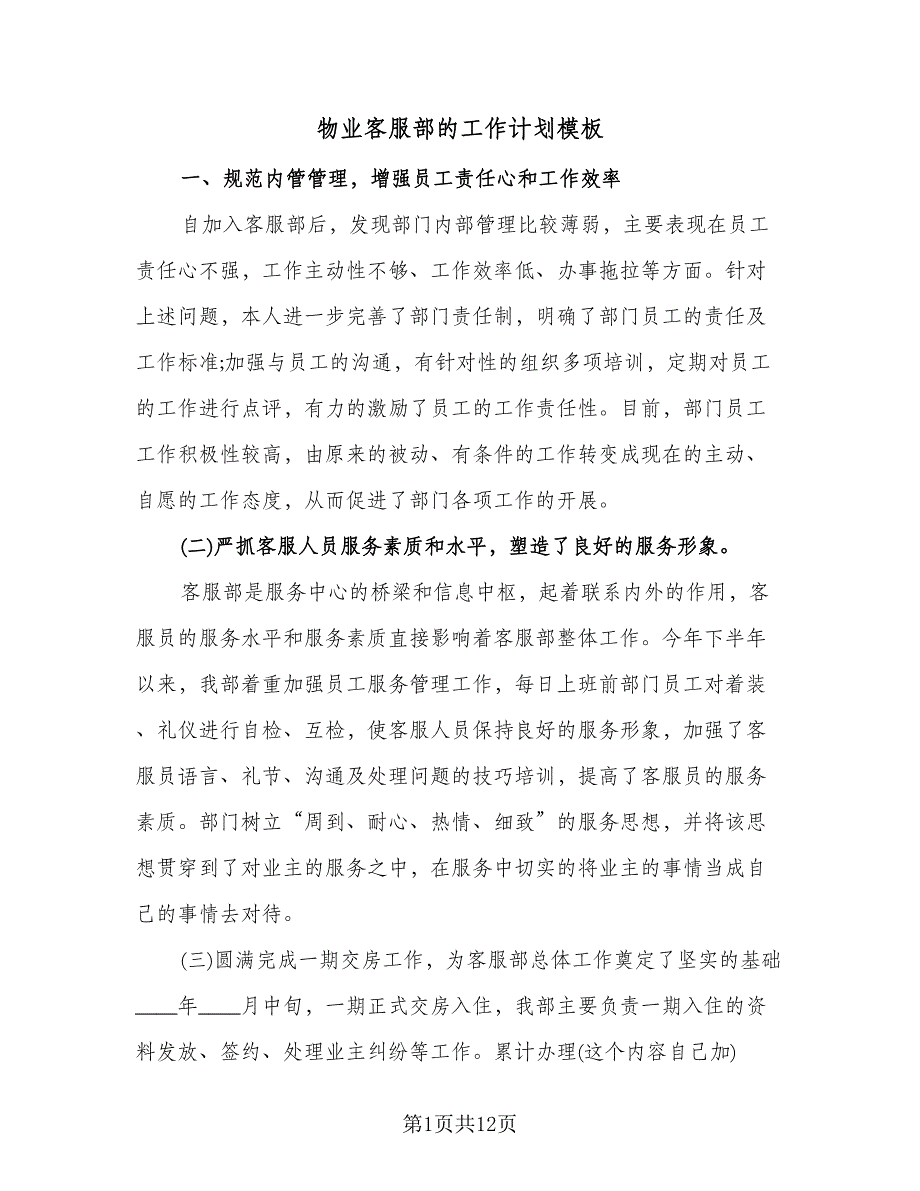 物业客服部的工作计划模板
一、规范内管管理，增强员工责任心和工作效率
自加入客服部后，发现部门内部管理比较薄弱，主要表现在员工
责任心不强，工作主动性不够、工作效率低、办事拖拉等方面。针对
上述问题，本人进一步完善了部门责任制，明确了部门员工的责任及
工作标准;加强与员工的沟通，有针对性的组织多项培训，定期对员工
的工作进行点评，有力的激励了员工的工作责任性。目前，部门员工
工作积极性较高，由原来的被动、有条件的工作转变成现在的主动、
自愿的工作态度，从而促进了部门各项工作的开展。
(二)严抓客服人员服务素质和水平，塑造了良好的服务形象。
客服部是服务中心的桥梁和信息中枢，起着联系内外的作用，客
服员的服务水平和服务素质直接影响着客服部整体工作。今年下半年
以来，我部着重加强员工服务管理工作，每日上班前部门员工对着装
、礼仪进行自检、互检，使客服人员保持良好的服务形象，加强了客
服员语言、礼节、沟通及处理问题的技巧培训，提高了客服员的服务
素质。部门树立“周到、耐心、热情、细致”的服务思想，并将该思
想贯穿到了对业主的服务之中，在服务中切实的将业主的事情当成自
己的事情去对待。
(三)圆满完成一期交房工作，为客服部总体工作奠定了坚实的基础
____年____月中旬，一期正式交房入住，我部主要负责一期入住的资
料发放、签约、处理业主纠纷等工作。累计办理(这个内容自己加)
第1页共12页